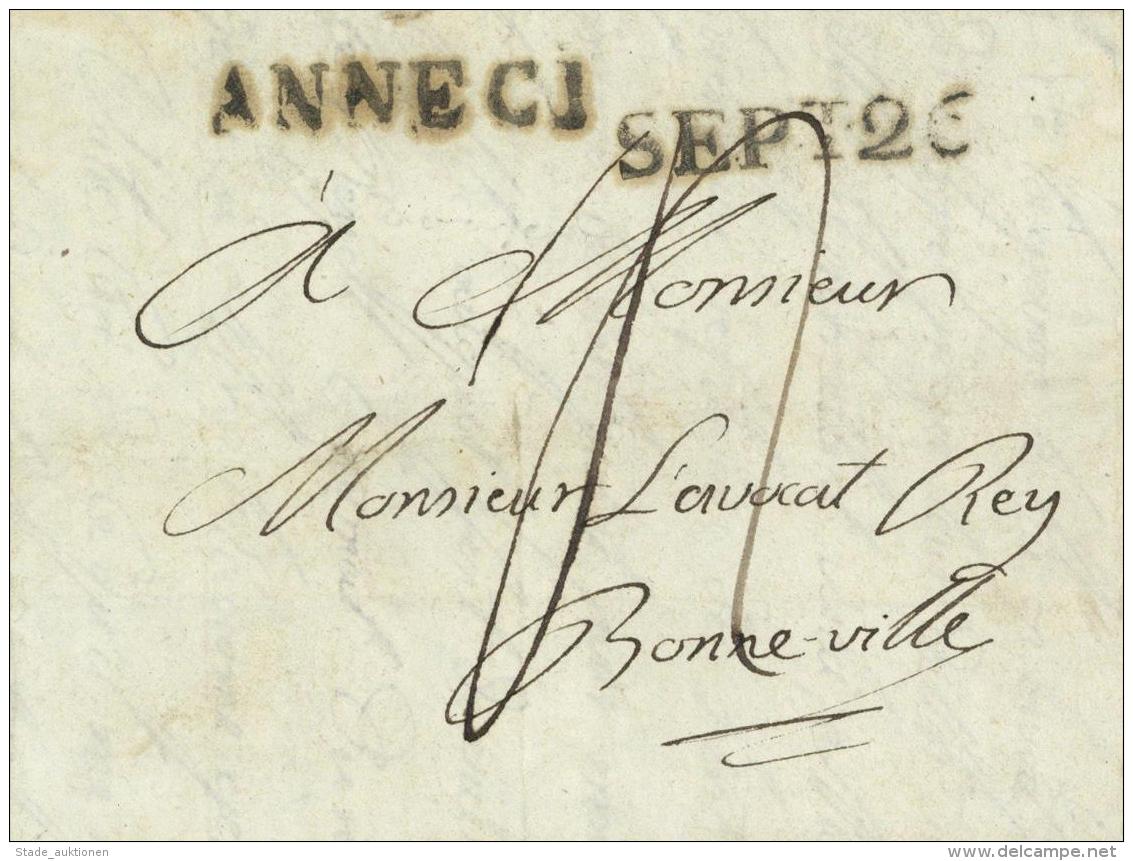 ANNECI
SEPT 26
à Monsieur
Monsieur L'avocat Rey
Bonne-ville
Stade_auktionen
www.delcampe.net